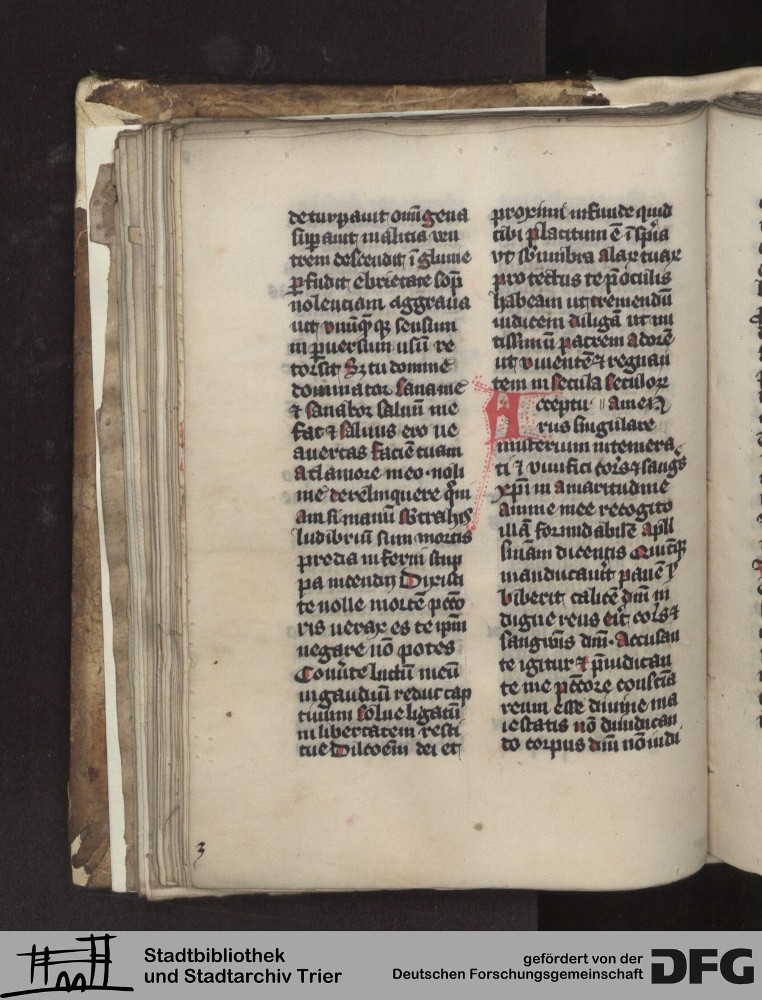 deturpauit om̄i gena
sup̱auit malitia uen
trem descendit ī glutie
ꝑfudit ebrietate sop̄
nolentiam aggraua
uit vnūqͣꝫ sensum
in ꝑuersum usū re
torsit Sꝫ tu domine
dominator sana me
⁊ sanabor saluū me
fac ⁊ saluus ero ne
auertas faciē tuam
A clamore meo · noli
me derelinquere qm̄
am si manū subtrahis
ludibriū sum mortis
preda inferni stup
pa incendij Dixisti
te nolle mortē pctō
ris uerax es te ip̄m
negare nō potes
Conūte luctū meū
in gaudiū reduc cap
tiuum solue ligatū
in libertatem resti
tue Dilcōem dei et
proximi infunde quid
tibi placitum ē ī sp̄ia
vt sub umbra alaꝝ tuaꝝ
protectus te p̄ oculis
habeam ut tremendū
iudicem diligā ut mi
tissimū patrem adorē
ut viuentē ⁊ regnan
tem in secula seculoꝝ
Accepturus Amen
rus singulare
misterium intemera
ti ⁊ viuifici corꝑs ⁊ sangͥs
xp̄i in amaritudine
anime mee recogito
illā formidabilē apl̄i
s̄niam dicentis Quicūqꝫ
manducauit panē ł
biberit calicē dm̄ in
digne reus erit corꝑs ⁊
sanguīs dm̄ · Accusan
te igitur ⁊ p̄iudican
te me pctōre consciā
reum esse diuine ma
iestatis nō diiudican
do corpus dm̄ nō iudi
3
Stadtbibliothek
und Stadtarchiv Trier
gefördert von der
Deutschen Forschungsgemeinschaft
DFG